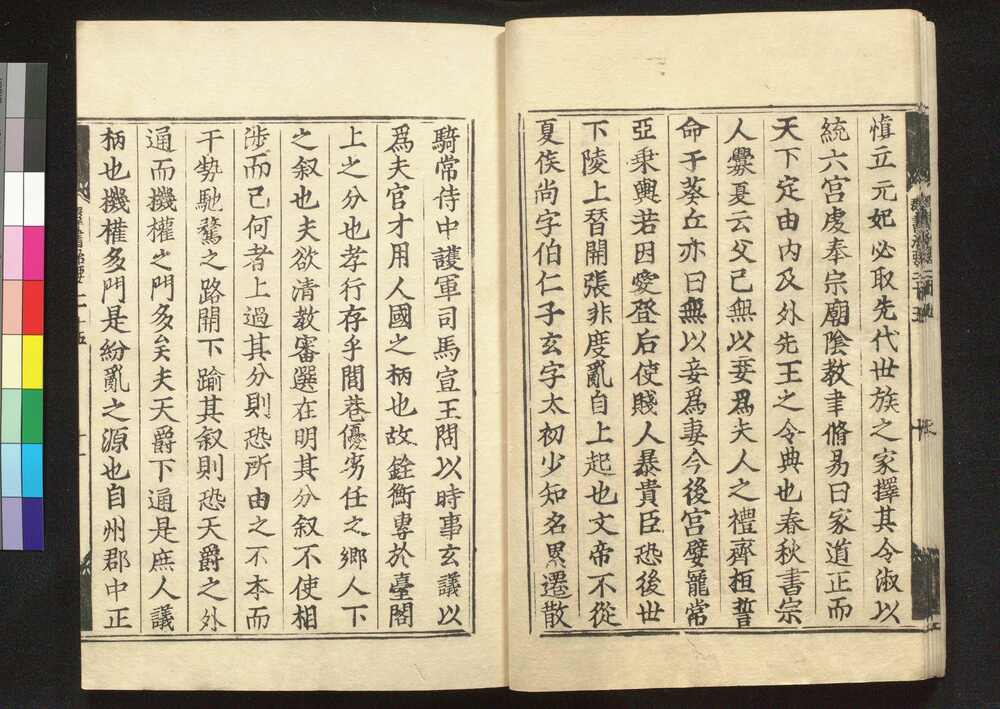 慎立元妃必取先代世族之家擇其令淑以
統六宮虔奉宗廟陰教聿脩易曰家道正而
天下定由内及外先王之令典也春秋書宗
人釁夏云父已無以妾爲夫人之禮齊桓誓
命于葵丘亦曰無以妾爲妻今後宮嬖寵常
亞乘輿若因愛登后使賤人暴貴臣恐後世
下陵上替開張非度亂自上起也文帝不從
夏侯尚字伯仁子玄字太初少知名累遷散
騎常侍中護軍司馬宣王問以時事玄議以
爲夫官才用人國之柄也故銓衡專於臺閣
上之分也孝行存乎閭巷優劣任之鄉人下
之叙也夫欲清教審選在明其分叙不使相
涉而已何者上過其分則恐所由之不本而
干勢馳騖之路開下踰其叙則恐天爵之外
通而機權之門多矣夫天爵下通是庶人議
柄也機權多門是紛亂之源也自州郡中正
群書治要二十五